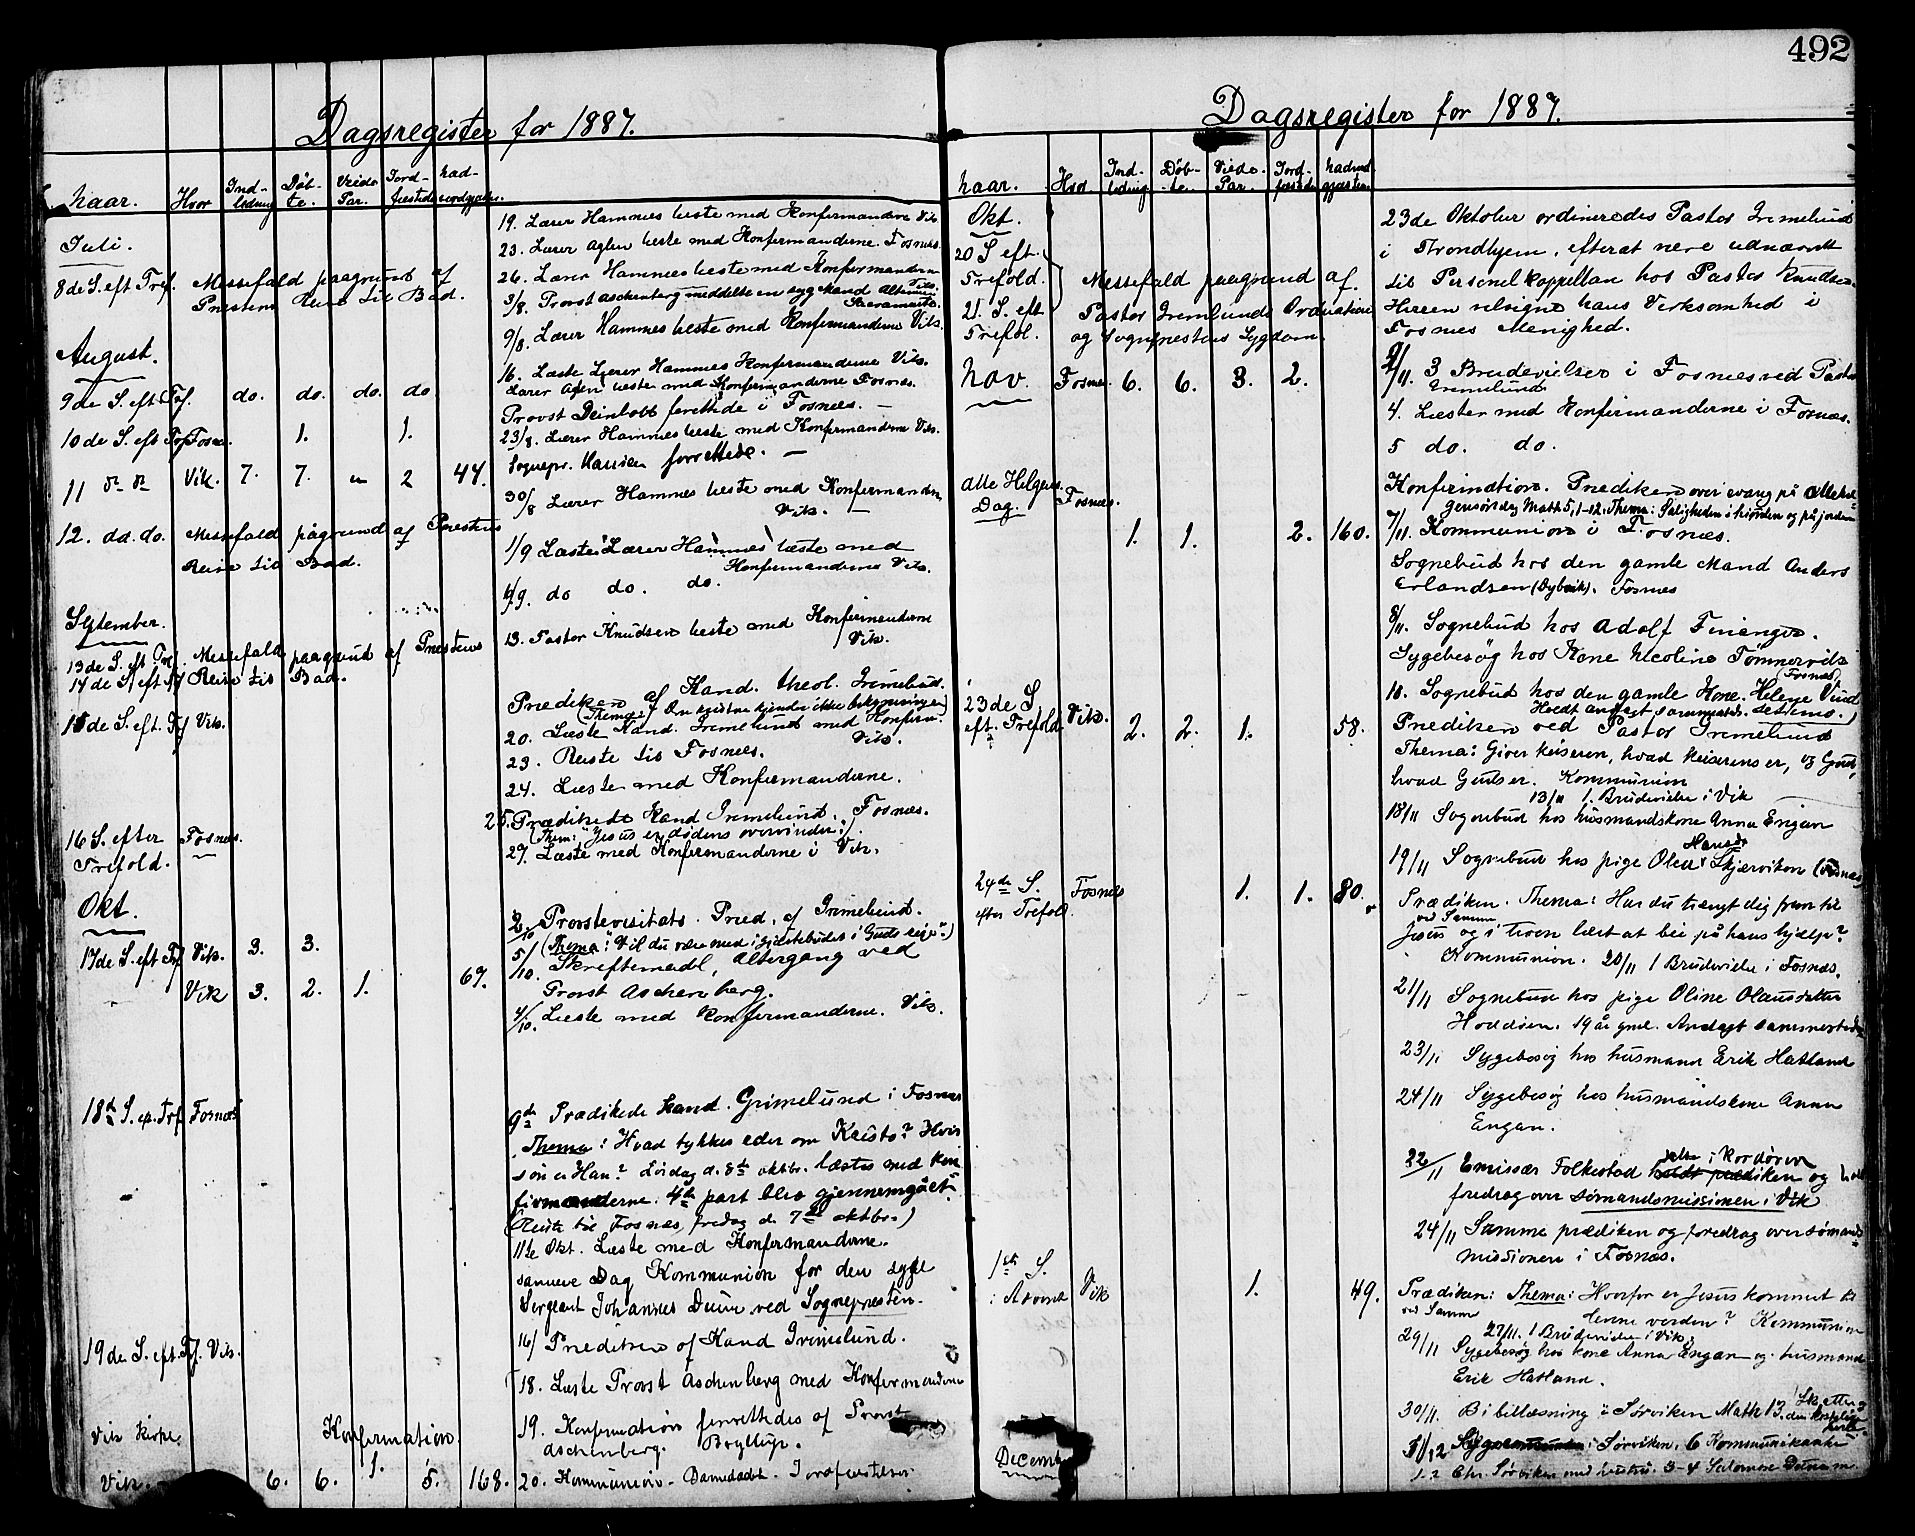 492
Dagsregister for 1887.
Naar. Hvor Ind- Døb- Viede Jord- Nad-
ledning te. Par. fæstede verdgjæster.
Juli.
8de S. eft Tref. Messefald paagrund af
Prestens Reise til Bad.
August.
9de S. eft Tref. do. do. do. do.
10de S. eft Tref Fosnes. 1. 1.
11 do do Vik. 7. 7. " 2 44.
12. do. do. Messefald pågrund af Prestens
Reise til Bad.
September.
13de S. eft Tref. Messefald paagrund af Prestens
14de S. eft Tref Reise til Bad.
15de S. eft. Tref Vik.
16 S. efter Fosnes.
Trefold.
Okt.
17de S. eft Tref Vik. 3. 3.
Vik 3. 2. 1. 67.
18de S. ep. Trf. Fosnæs
19de S. eft. Tref. Vik.
Vik kirke. Konfirmation.
Vik. 6. 6. 1. 5. 168.
19. Lærer Hammes leste med Konfermanderne Vik
23. Lærer Aglen leste med Konfermanderne. Fosnes.
26. Lærer Hammes leste med Konfermanderne
Vik.
3/8. Provst Aschenberg meddelte en syg Mand Alterens
Sacramente.
9/8. Lærer Hammes leste med Konfermanderne Vik.
16. Læste Lærer Hammes Konfermanderne Vik.
Lærer Aglen leste med Konfermanderne Fosnæs.
Provst Deinboll forettede i Fosnæs.
23/8. Lærer Hammes leste med Konfermanderne Vik.
Sognepr. Hansen forrettede.
30/8 Lærer Hammes leste med Konfermanderne
Vik.
1/9 Læste Lærer Hammes læste med
Konfermanderne Vik.
6/9. do do. do.
13. Pastor Knudsen leste med Konfermanderne
Vik.
Prediken af Kand. theol. Grimelund.
(Thema: En kristen kjender ikke bekymringer)
20. Læste Kand. Grimelund med Konferm.
Vik.
23. Reiste til Fosnæs.
24. Læste med Konfermanderne.
25. Prædikede Kand Grimelund. Fosnæs.
(Them: "Jesus er dødens overvinder.)
27. Læste med Konfermanderne i Vik.
2/10 Provstevisitats. Præd. af Grimelund.
(Thema: Vil du være med i gjæstebudet i Guds rige".)
5/10. Skriftemaal, Altergang ved
Provst Aschenberg.
4/10. Læste med Konfermanderne. Vik.
9de Prædikede kand. Grimelund i Fosnæs
Thema: Hvad tykkes eder om Kristo? Hvis
søn er Han? Lördag d. 8de oktbr. læstes med kon
firmanderne. 4de part blev gjennemgået.
(Reiste til Fosnæs, fredag d. 7de oktbr.)
11te Okt. Læste med Konfermanderne.
samme Dag Kommunion for den syge
Sergeant Johannes Duun ved Sognepresten.
16/ Prediken af Kand Grimelund.
18. Læste Provst Aschenberg med Konfermanderne
19. Konfermation forrettedes af Provst
Aschenberg. Bryllup.
20. Kommunion - Barnedaab - Jordfæstelser
Dagsregister for 1887.
Naar. Hvor Ind- Døb- Viede Jord- Nadverd
ledning te. Par. fæstede gjæster.
Okt.
20 S eft
Trefold. Messefald paagrund af
21. S. eft Pastor Grimlunds Ordination
Trefol. og Sognprestens Sygdom.
Nov. Fosnæs. 6. 6. 3. 2.
Alle Helgens
Dag. Fosnæs.
1. 1. 2. 160.
23de S
eft. Trefold Vik. 2. 2. 1. 58.
24de S. Fosnæs 1. 1. 80.
efter Trefold.
1ste S.
i Advent Vik 1. 49.
December
23de Oktober ordineredes Pastor Grimelund
i Trondhjem, efterat være udnævnt
til Personelkappellan hos Pastor Knudsen.
Herren velsigne hans Virksomhed i
Fosnes Menighed.
2/11. 3 Brudevielser i Fosnes ved Pastor
Grimelund
4. Læster med Konfermanderne i Fosnæs.
5 do. do.
Konfirmation. Prediken over evang på Allehel
gensøndag Matth 5, 1-12. Thema: Saligheden i himlen og på jorden
7/11. Kommunion i Fosnæs.
Sognebud hos den gamle Mand Anders
Erlandsen (Dybvik). Fosnæs
8/11. Sognebud hos Adolf Finanger.
Sygebesøg hos Kone Nicoline Tømmervik
(Fosnæs)
10. Sognebud hos den gamle Kone. Helene Vind
Holdt andagt sammesteds.
Prediken ved Pastor Grimelund
Thema: Giver keiseren, hvad keiserens er, og Gud,
hvad Guds er. Kommunion
13/11 1. Brudevielse i Vik
18/11 Sognebud hos husmandskone Anna Engan
19/11 Sognebud hos pige Olea Hansd Skjærviken (Fosnæs
Prædiken. Thema: Har du trængt dig frem til
ved Samme
Jesus og i troen lært at bie på hans hjælp?
Kommunion. 20/11 1 Brudevielse i Fosnæs.
21/11 Sognebud hos pige Oline Olausdatter
Hoddöen. 19 år gml. Andagt sammesteds
23/11 Sygebesøg hos husmand Erik Hatland
24/11 Sygebesøg hos husmandskone Anna
Engan.
22/11 Emissær Folkestad holdt prædiken og holdt
foredrag over sømandsmissionen i Vik
24/11 Samme prædiken og foredrag over sømands
missionen i Fosnæs.
Prædiken: Thema: Hvorfor er Jesus kommet til
ved Samme
denne verden? Kommunion
27/11. 1 Brudevielse i Vik.
29/11 Sygebesøg hos kone Anna Engan og husmand
Erik Hatland.
30/11. Bibellæsning i Sørviken Math 13. den kostelige
perle.
5/12 Sørviken. 6 Kommunikanter
1-2 Chr. Sørviken med hustru. 3-4 Salomon